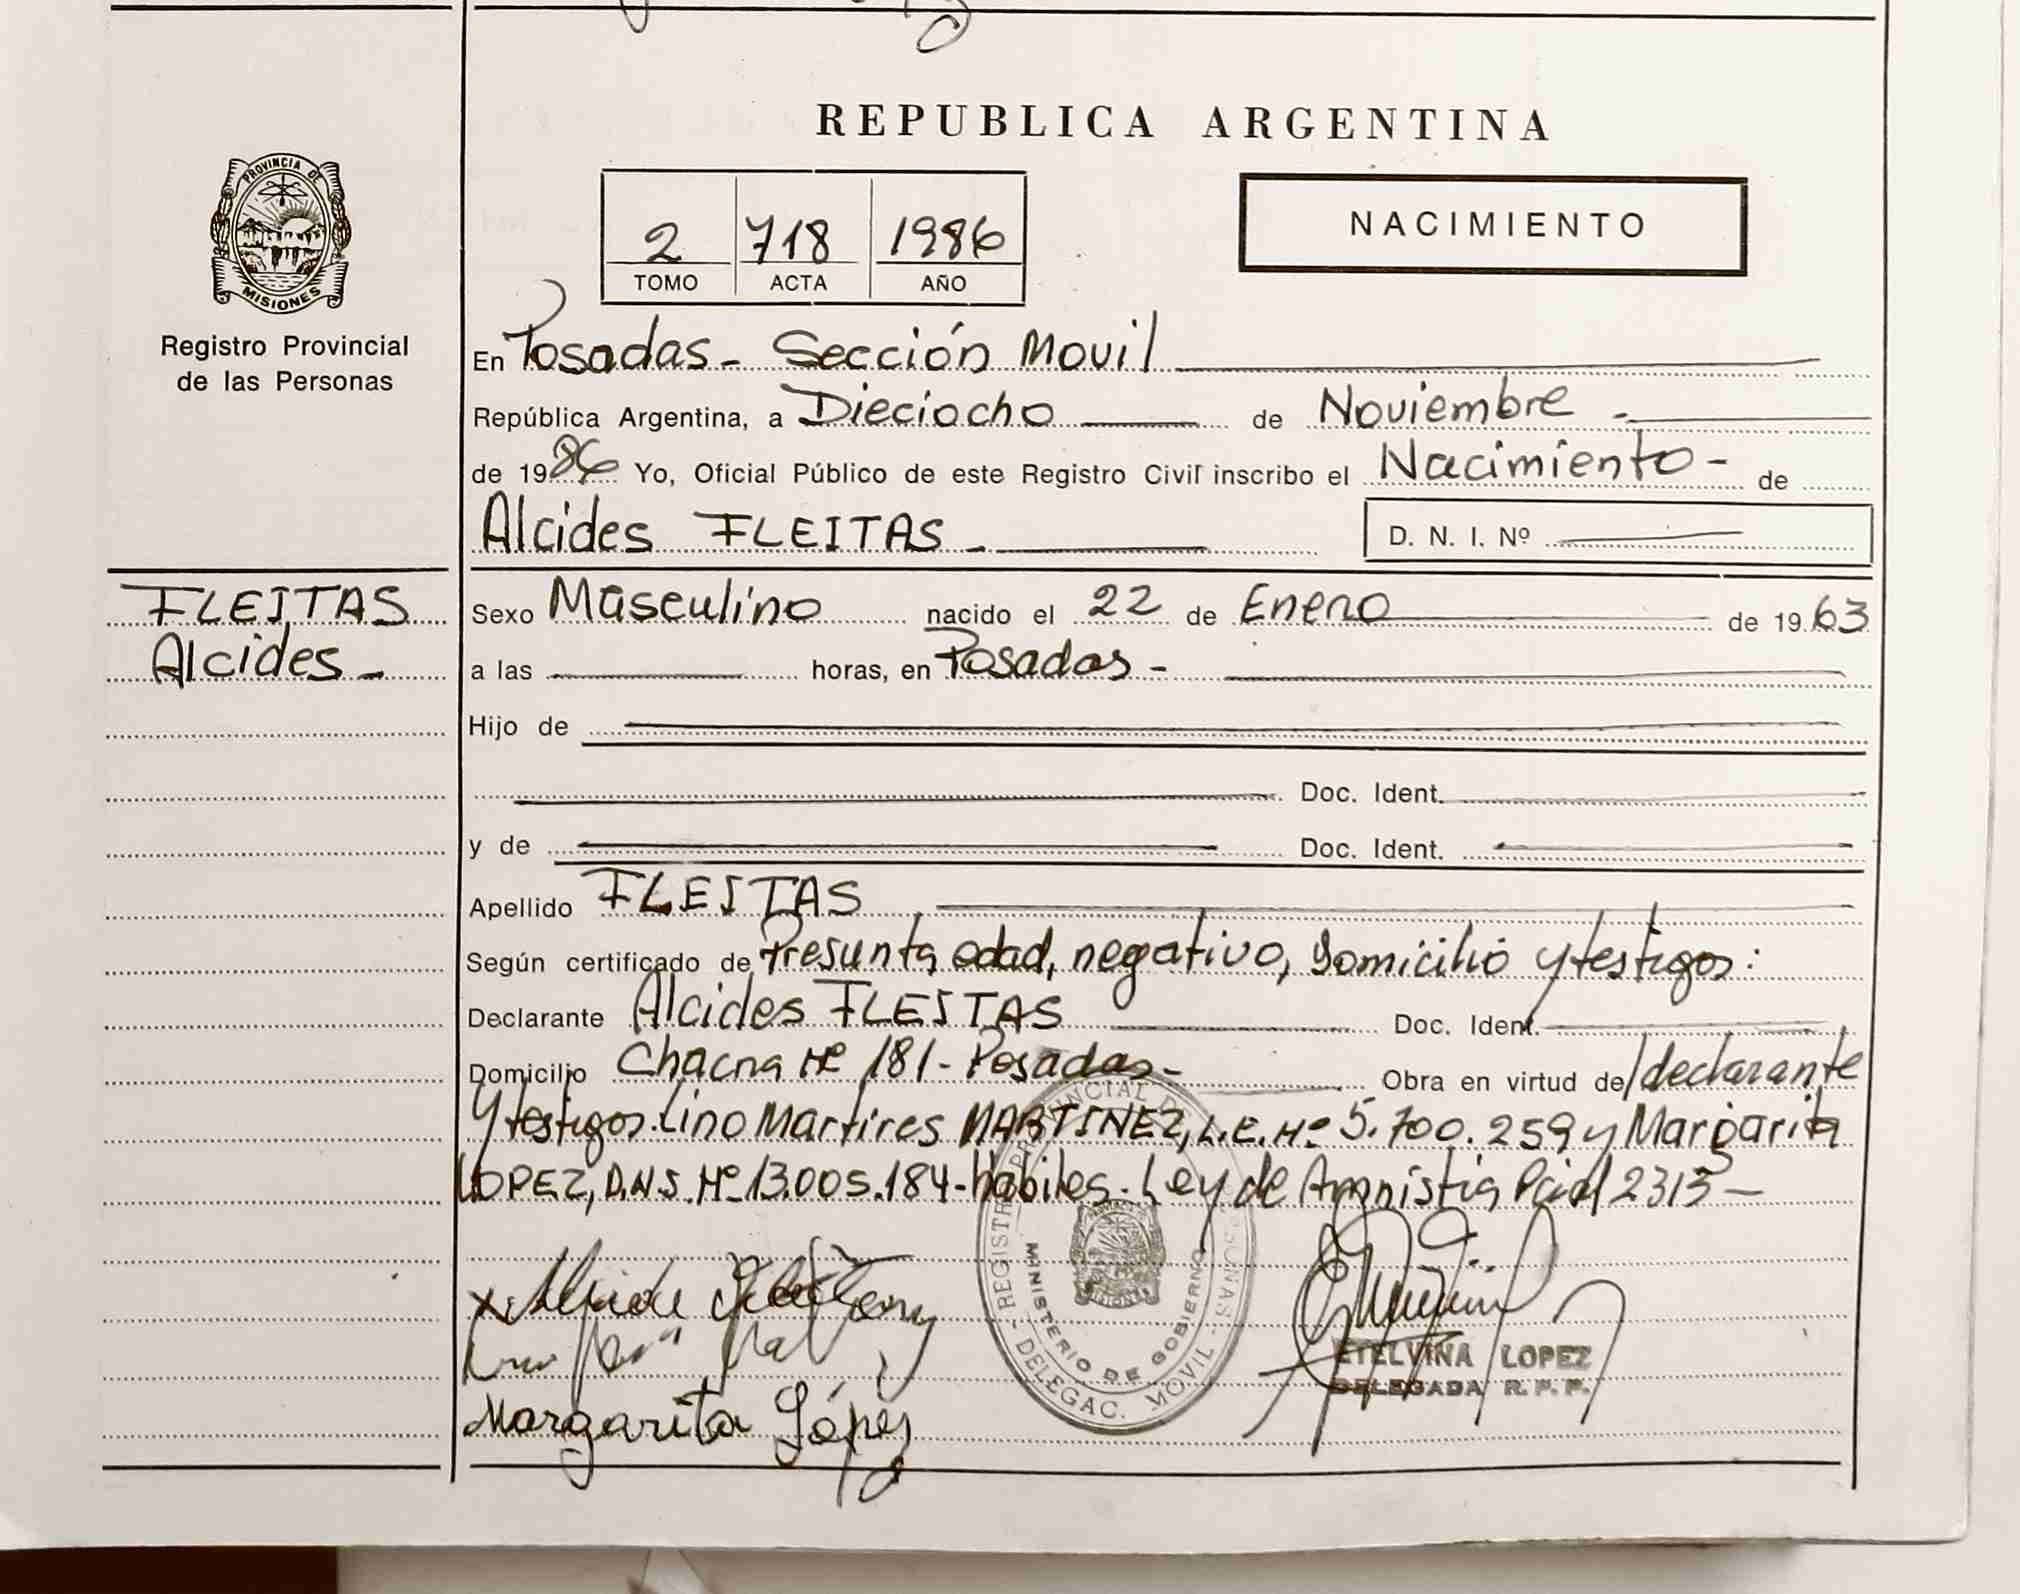 REPUBLICA ARGENTINA
PROVINCIA DE
MISIONES
Registro Provincial
de las Personas
2 718 1986
TOMO ACTA AÑO
NACIMIENTO
En Posadas - Sección Movil
República Argentina, a Dieciocho de Noviembre -
de 1986 Yo, Oficial Público de este Registro Civil inscribo el Nacimiento - de
Alcides FLEITAS - D. N. I. Nº
FLEITAS
Alcides -
Sexo Masculino nacido el 22 de Enero de 1963
a las horas, en Posadas -
Hijo de
Doc. Ident.
y de Doc. Ident.
Apellido FLEITAS
Según certificado de Presunta edad, negativo, domicilio y testigos:
Declarante Alcides FLEITAS Doc. Ident.
Domicilio Chacra Nº 181 - Posadas - Obra en virtud de /declarante
y testigos. Lino Martires MARTINEZ, L.E. Nº 5.700.259 y Margarita
LOPEZ, D.N.I. Nº 13.005.184 - habiles - Ley de Amnistia Pcial 2313 -
REGISTRO PROVINCIAL DE PERSONAS - DELEGAC. MOVIL -
MINISTERIO DE GOBIERNO
MISIONES
ETELVINA LOPEZ
DELEGADA R. P. P.
Margarita López